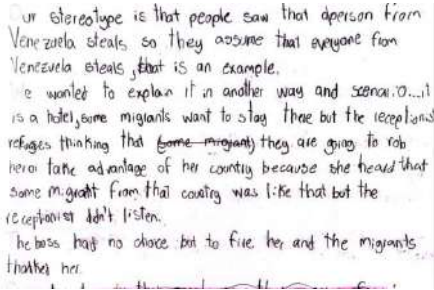 ur stereotype is that people saw that aperson from
Venezuela steals so they assume that everyone from
Venezuela steals, that is an example.
e wanted to explain it in another way and scenario....it
is a hotel, some migrants want to stay there but the receptionis
refuges thinking that (some migrant) they are going to rob
her or take advantage of her country because she heard that
some migratt from that country was like that but the
receptionist ddn't listen.
he boss had no choice but to fire her and the migrants
thather her.